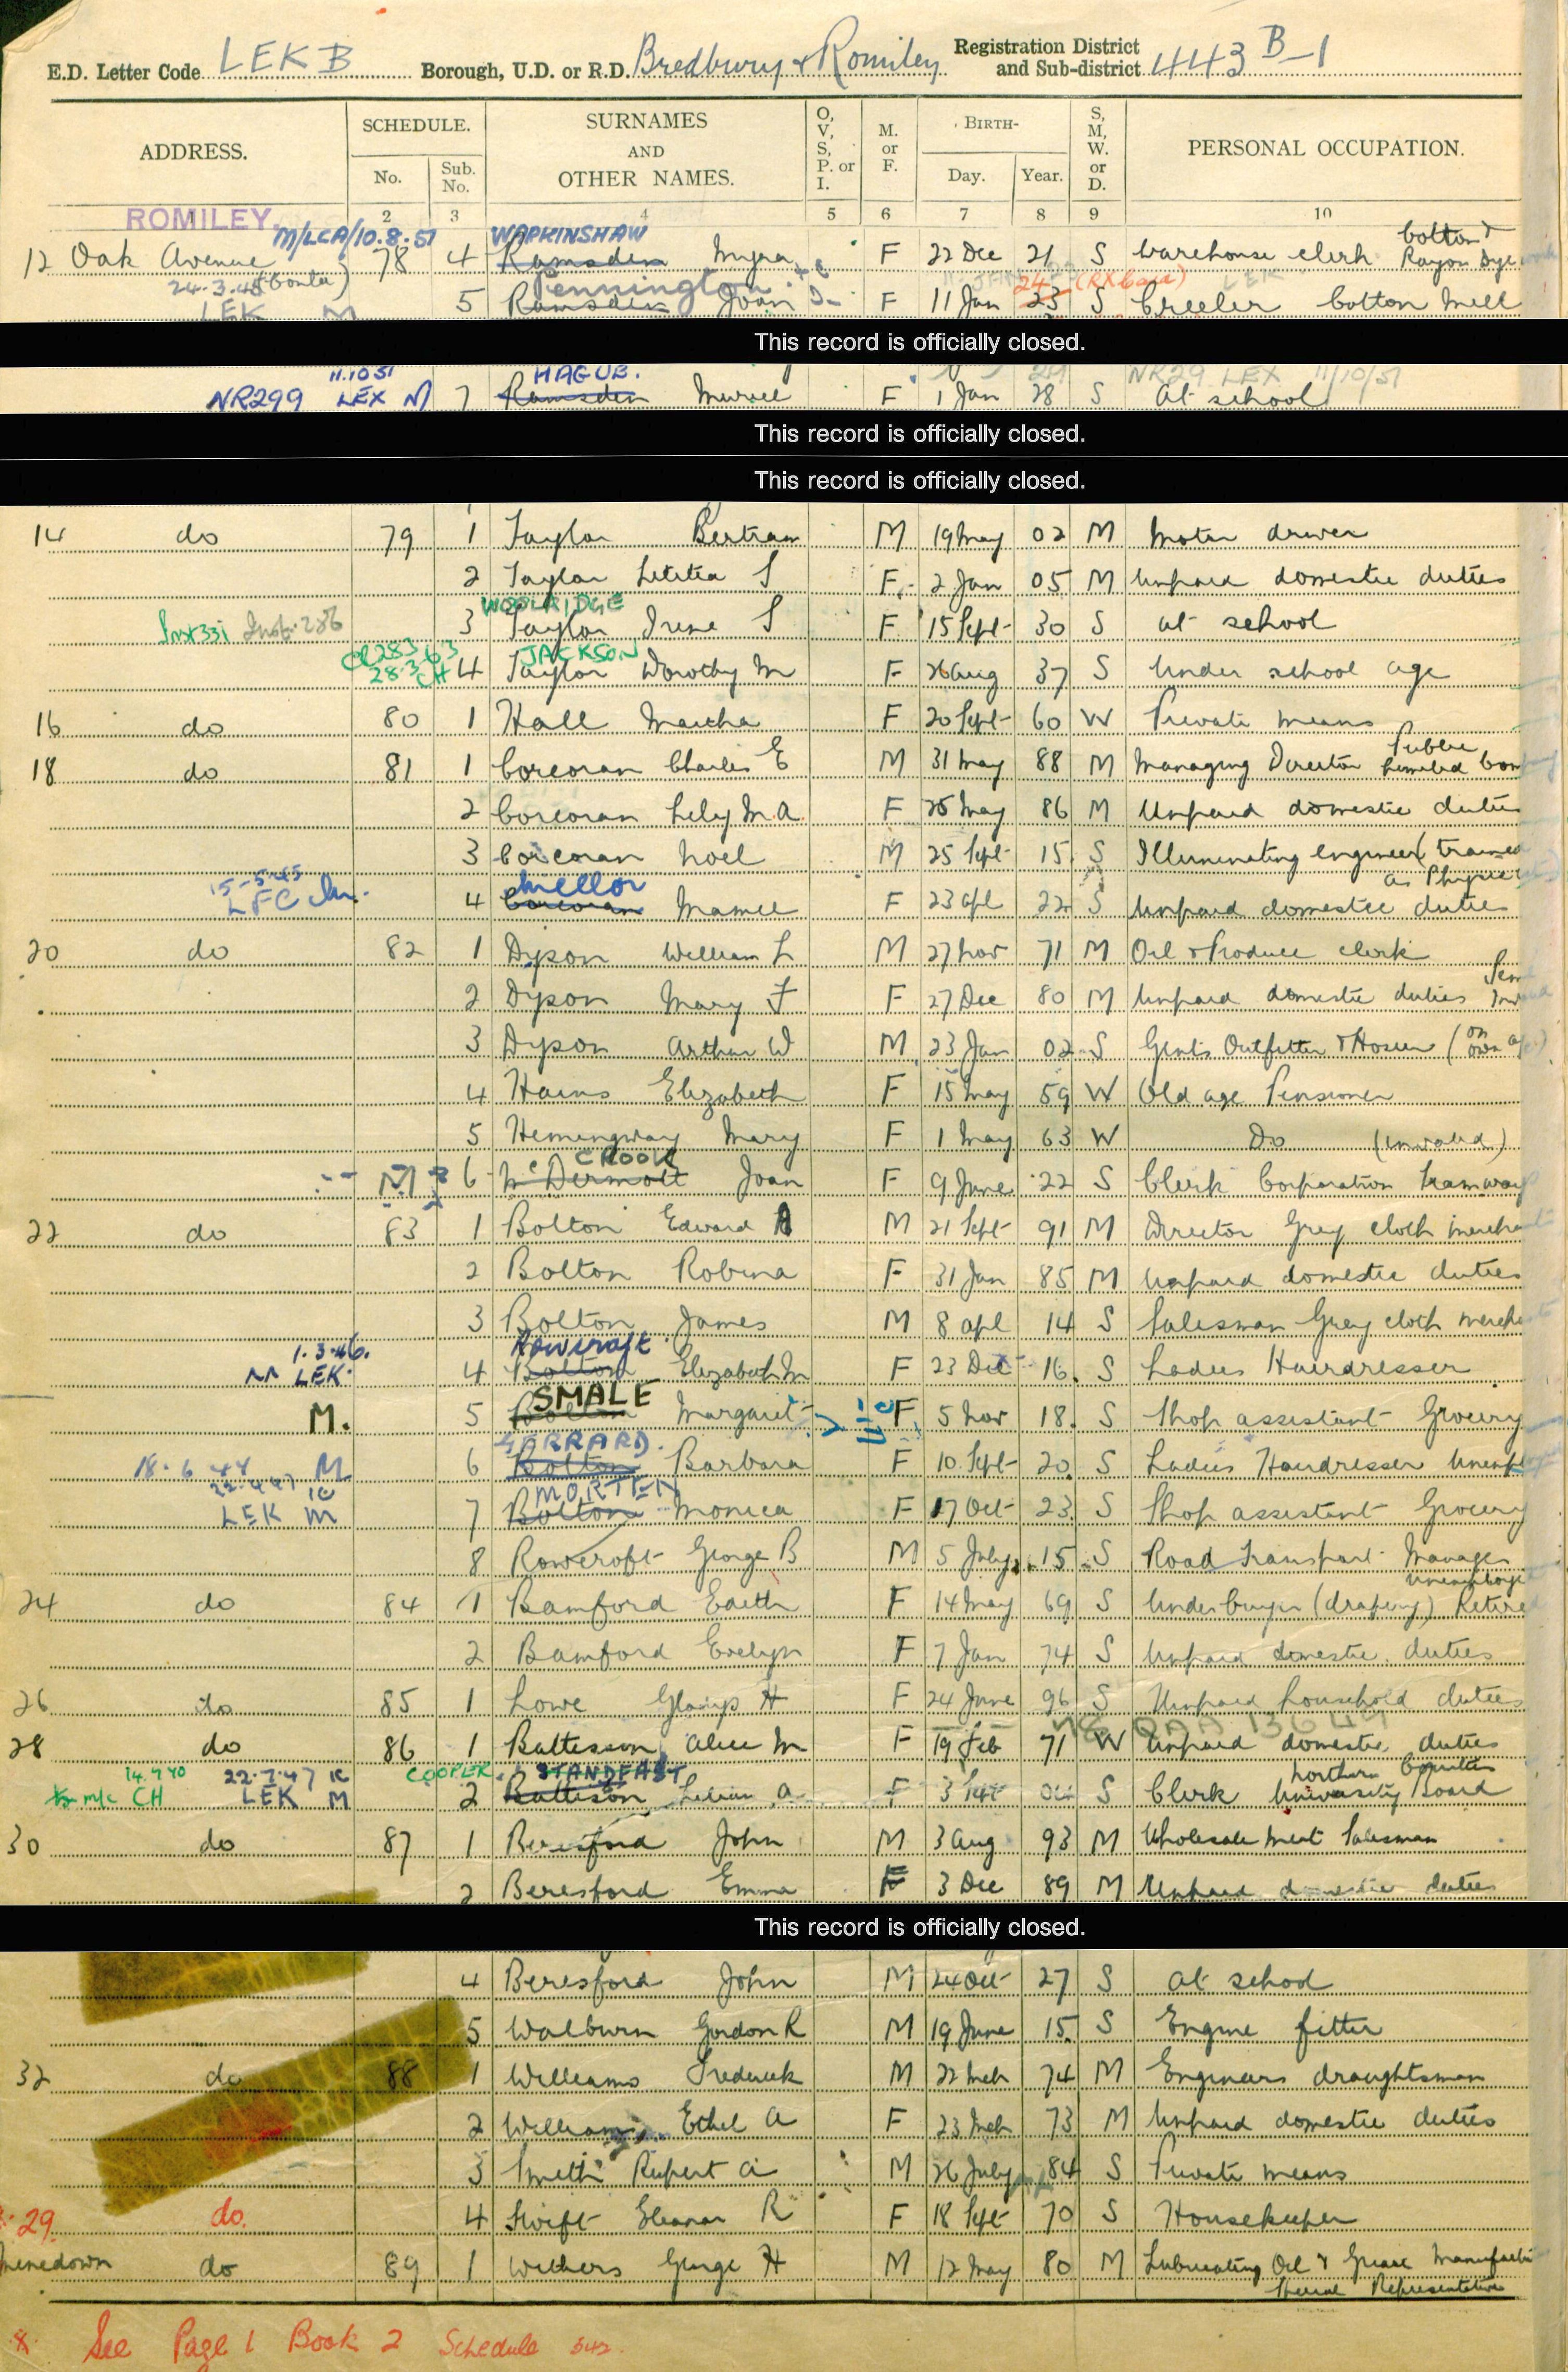 E.D. Letter Code LEK B Borough, U.D. or R.D. Bredbury & Romiley Registration District and Sub-district 443 B-1
ADDRESS. SCHEDULE. No. Sub. No. SURNAMES AND OTHER NAMES. O, V, S, P. or I. M. or F. BIRTH- Day. Year. S, M, W. or D. PERSONAL OCCUPATION.
ROMILEY. 2 3 4 5 6 7 8 9 10
M/LCA/10.8.51 WAPKINSHAW
12 Oak Avenue 78 4 Ramsden Myra F 22 Dec 21 S Warehouse clerk Cotton & Rayon Dye
24.3.45 (Conta) Pennington 24 (RX Case)
LEK M 5 Ramsden Joan F 11 Jan 23 S Creeler Cotton Mill
This record is officially closed.
11.10 51 HAGUE. NR29 LEX 11/10/51
NR299 LEX M 7 Ramsden Muriel F 1 Jan 28 S At school
This record is officially closed.
This record is officially closed.
14 do 79 1 Taylor Bertram M 19 May 02 M Motor driver
2 Taylor Letitia S F 2 Jan 05 M Unpaid domestic duties
WOOLRIDGE
Inst 331 Inst. 286 3 Taylor Irene S F 15 Sept 30 S at school
JACKSON
28.3.63 CH 4 Taylor Dorothy M F 26 Aug 37 S Under school age
16 do 80 1 Hall Martha F 20 Sept 60 W Private means
18 do 81 1 Corcoran Charles E M 31 May 88 M Managing Director Public Limited Com
2 Corcoran Lily M.A F 25 May 86 M Unpaid domestic duties
3 Corcoran Noel M 25 Sept 15 S Illuminating engineer (trained as Physic
15-5-45 Mellor
LFC 4 Corcoran Mamie F 23 Apl 22 S Unpaid domestic duties
20 do 82 1 Dyson William L M 27 Nov 71 M Oil & Produce clerk
2 Dyson Mary F F 27 Dec 80 M Unpaid domestic duties
3 Dyson Arthur W M 23 Jan 02 S Gents Outfitter & Hosier (on own a/c)
4 Hains Elizabeth F 15 May 59 W Old age Pensioner
5 Hemingway Mary F 1 May 63 W Do (invalid)
CROOK
M 6 McDermott Joan F 9 June 22 S Clerk Corporation Tramways
22 do 83 1 Bolton Edward A M 21 Sept 91 M Director Grey cloth merchant
2 Bolton Robina F 31 Jan 85 M Unpaid domestic duties
3 Bolton James M 8 Apl 14 S Salesman Grey cloth merch
1.3.46. Rowcroft
LEK 4 Bolton Elizabeth M F 23 Dec 16 S Ladies Hairdresser
SMALE
M. 5 Bolton Margaret F 5 Nov 18 S Shop assistant Grocery
GARRARD.
18.6.44 M 6 Bolton Barbara F 10 Sept 20 S Ladies Hairdresser Unempl
22.4.47 MORTEN
LEK M 7 Bolton Monica F 17 Oct 23 S Shop assistant Grocery
8 Rowcroft George B M 5 July 15 S Road Transport Manager unemployed
24 do 84 1 Bamford Edith F 14 May 69 S Underbuyer (drapery) Retired
2 Bamford Evelyn F 7 Jan 74 S Unpaid domestic duties
26 do 85 1 Lowe Gladys H F 24 June 96 S Unpaid household duties
28 do 86 1 Battisson Alice M F 19 Feb 71 W Unpaid domestic duties
14.9.40 22.7.47 COOPER STANDFAST
m/c CH LEK M 2 Battison Lilian A F 3 Sept S Clerk Northern Counties University Board
30 do 87 1 Beresford John M 3 Aug 93 M Wholesale meat Salesman
2 Beresford Emma F 3 Dec 89 M Unpaid domestic duties
This record is officially closed.
4 Beresford John M 24 Oct 27 S At school
5 Walburn Gordon R M 19 June 15 S Engine fitter
32 do 88 1 Williams Frederick M 22 Mch 74 M Engineers draughtsman
2 Williams Ethel A F 23 Mch 73 M Unpaid domestic duties
3 Smith Rupert A M 26 July 84 S Private means
29 do. 4 Swift Eleanor R F 18 Sept 70 S Housekeeper
do 89 1 Withers George H M 12 May 80 M Lubricating Oil & Grease Manufact
Representative
* See Page 1 Book 2 Schedule 542.